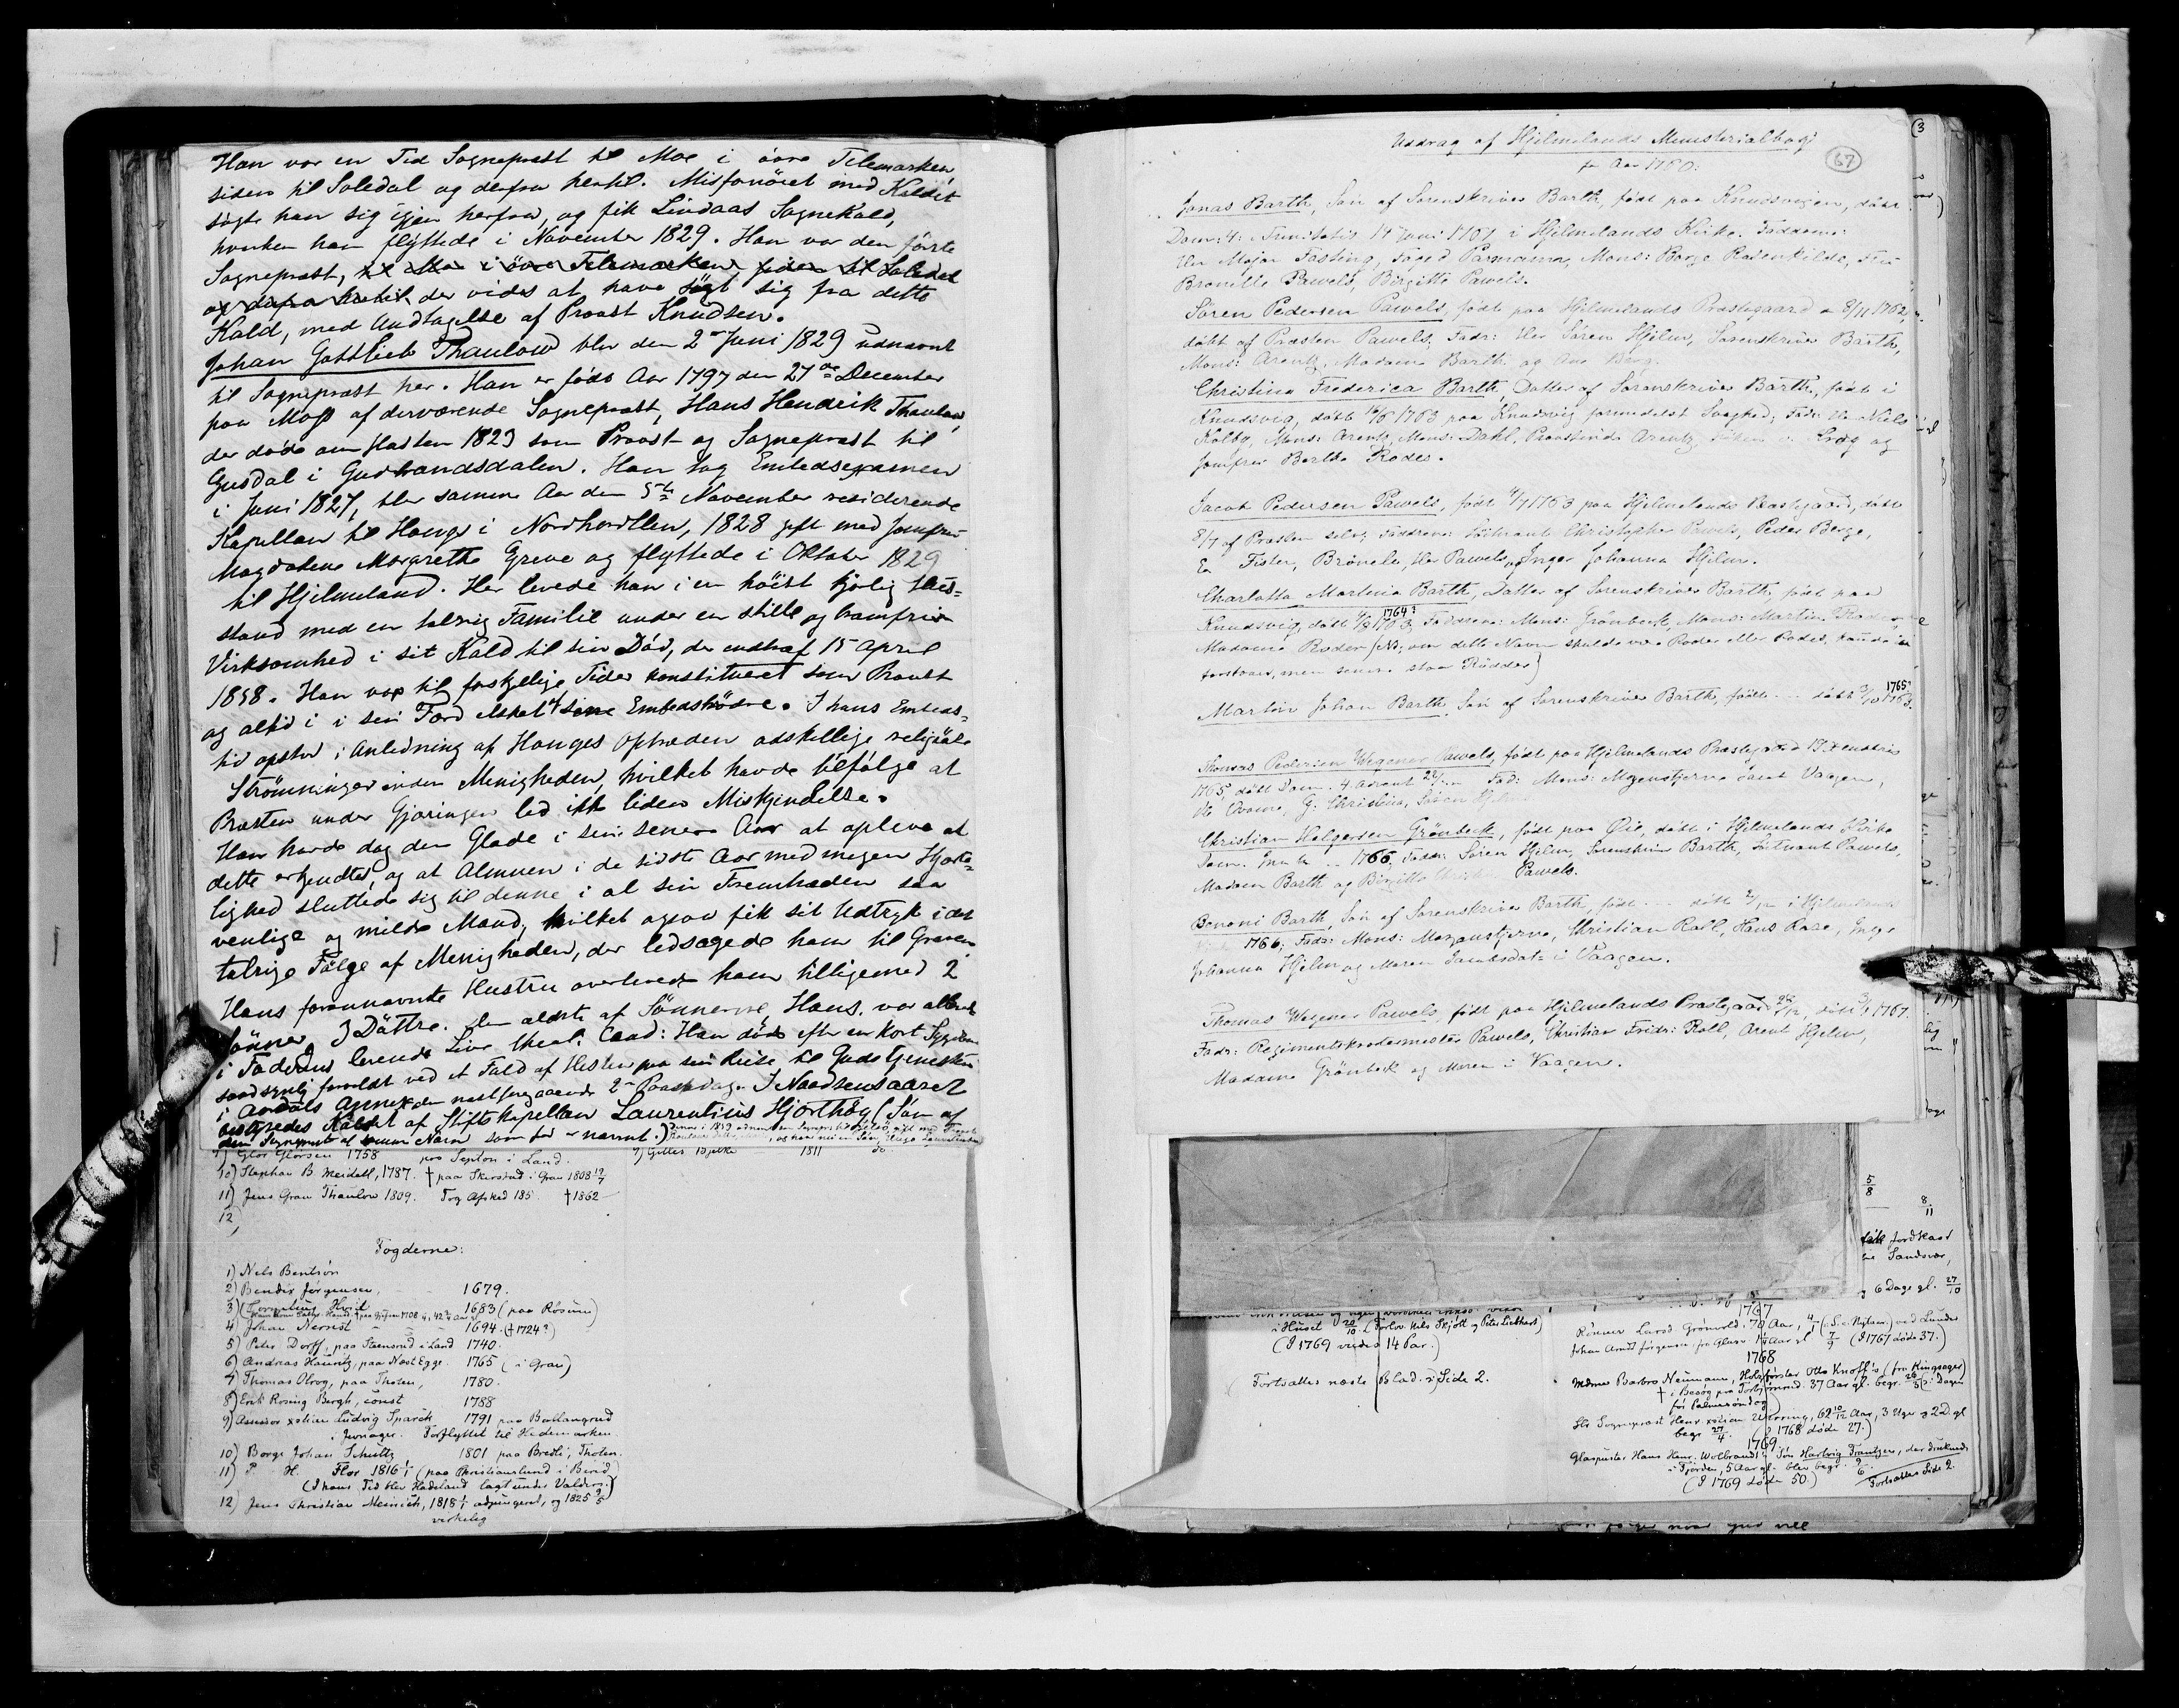 Han var en Tid Sognepræst til Moe i övre Telemarken,
siden til Soledal og derfra hertil. Misfornöiet med Kaldet
søgte han sig igjen herfra, og fik Lindaas Sognekald,
hvorhen han flyttede i November 1829. Han var den förste
Sognepræst, til Moe i övre Telemarken, siden til Soledal
og derfra hertil, der vides at have søgt sig fra dette
Kald, med Undtagelse af Provst Knudsen.
Johan Gottlieb Thaulow blev den 2 Juni 1829 udnævnt
til Sognepræst her. Han er född Aar 1797 den 27de December
paa Moss af derværende Sognepræst, Hans Hendrik Thaulow,
der döde om Hösten 1823 som Provst og Sognepræst til
Gusdal i Gudbrandsdalen. Han tog Embedsexamen
i Juni 1827, blev samme Aar den 5te November residerende
Kapellan til Hougs i Nordhordlen, 1828 gift med Jomfru
Magdalene Margrethe Greve og flyttede i Oktober 1829
til Hjelmeland. Her levede han i en höist kjærlig Ægte=
stand med en talrig Familie under en stille og
Virksomhed i sit Kald til sin Död, der indtraf 15 April
1858. Han var til forskjellige Tider konstitueret som Provst
og altid i sin Færd elsket af sine Embedsbrödre. I hans Embeds=
tid opstod i Anledning af Hauges Optræden adskillige religiöse
Strömninger inden Menigheden, hvilket havde tilfölge at
Præsten under Gjæringen led ikke liden Miskjendelse.
Han havde dog den Glæde i sine senere Aar at opleve at
dette erkjendtes, og at Almuen i de sidste Aar med megen Hjerte=
lighed sluttede sig til denne i al sin Fremtræden saa
venlige og milde Mand, hvilket ogsaa fik sit Udtryk i det
talrige Fölge af Menigheden, der ledsagede ham til Graven.
Hans forannævnte Hustru overlevede ham tilligemed 2
Sönner, 3 Döttre. Den ældste af Sönnerne, Hans, var allerede
i Faderens levende Live theol. Cand: Han döde efter en kort Sygdom
sandsynlig forvoldt ved et Fald af Hesten paa sin Reise til Gudstjenesten
i Aardals Annex den næstforegaaende 2den Paaskedag. I Naadsensaaret
bestyredes Kaldet af Stiftskapellan Laurentius Hjorthög (Sön af
den Sognepræst af samme Navn som for er nævnt.)
9) Glor Glörsen 1758 paa Septon i Land.
9) Gilles Bjelke 1811 do
10) Stephan B Meidell, 1787. † paa Skiaxrud i Gran 1808 19/7
11) Jens Gran Thaulow 1809. Tog Afsked 185 † 1862
12)
Fogderne:
1) Nels Bentsön
2) Bendix Jörgensen, 1679.
3) 1683 (paa Røsum)
4) Johan Nernst 1694. († 1724?)
5) Peter Dorff, paa Steensrud i Land 1740.
6) Andreas Hauritz, paa Næst Egge. 1765 (i Gran)
7) Thomas Olrog, paa Thoten, 1780.
8) Erik Rosing Bergh, const 1788
9) Assessor xstian Ludvig Sparck 1791 paa Ballangrud
i Jevnager. Forflyttet til Hedemarken.
10) Borge Johan Schultz 1801 paa Bredli, Thoten.
11) P. H. Flor 1816 1/1 (paa Christianslund i Birid)
(I hans Tid blev Hadeland lagt under Valders.)
12) Jens Christian Meinich, 1818 1/1 adjungeret, og 1825 9/5
virkelig
Uddrag af Hjelmelands Ministerialbog
fr Aar 1760:
67
3
Jonas Barth, Sön af Sorenskriver Barth, födt paa Knudsvigen, döbt
Dom: 4: Trinitatis 14 Juni 1761 i Hjelmelands Kirke. Faddere:
Hr Major Fasting, Foged Parmann, Mons: Börge Rosenkilde, Fru
Bronille Pawels, Birgitte Pawels.
Sören Pedersen Pawels, födt paa Hjelmelands Præstegaard 8/11 1762,
döbt af Præsten Pawels, Fadr: Hr Sören Hjelm, Sorenskriver Barth,
Mons: Arentz, Madame Barth og Berg.
Christina Friderica Barth, Datter af Sorenskriver Barth, födt i
Knudsvig, döbt 14/6 1763 paa Knudsvig formedelst Svaghed, Fad: Hr Niels
Kolby, Mons: Arentz, Mons: Dahl, Provstinde Arentz, og
Jomfru Berthe Rodes.
Jacob Pedersen Pawels, födt 4/7 1763 paa Hjelmelands Præstegaard, döbt
8/7 af Præsten selv, Faddere: Löitnant Christopher Pawels, Peder Berge,
Fister, Brönele, Pawels, og Inger Johanna Hjelm.
Charlotta Martina Barth, Datter af Sorenskriver Barth, födt paa
Knudsvig, döbt 1763 1764? Faddere: Mons: Grönbeck, Mons: Martin Rode
Madame Roder (NB; om dette Navn skulde være Roder eller Rodes, kunde ei
forstaaes, men senere staar Rödder)
Martin Johan Barth, Sön af Sorenskriver Barth, födt ... döbt 3/10 1763. 1765?
Thomas Pedersen Wegener Pawels, födt paa Hjelmelands Præstegaard 19
1765, döbt Dom. 4 Advent 22/12 Fad: Mons: Morgenstjerne samt Vaagen,
G. Christine, Sören Hjelm
Christian Holgersen Grönbeck, födt paa Öie, döbt i Hjelmelands Kirke
Dom. 1766, Fadr: Sören Hjelm, Sorenskriver Barth, Löitnant Pawels,
Madam Barth og Birgitte Pawels.
Benoni Barth, Sön af Sorenskriver Barth, födt ... döbt i Hjelmelands
1766; Fadr: Mons: Morgenstjerne, Christian Roll, Hans Raae, Inger
Johanna Hjelm og Maren Jacobsdatr i Vaagen.
Thomas Wegener Pawels, födt paa Hjelmelands Præstegaard 28/12, döbt 3/1 1767.
Fadr: Regimentskvartermester Pawels, Christian Fridr: Roll, Arent Hjelm,
Madame Grönbeck og Maren i Vaagen.
5/8
8/11
fordkast
Sandsvær,
6 Dage gl. 27/10
i Huset 20/10. (Forlov. Nels Skjött og Peter Liebhart)
(I 1769 viedes 14 Par.)
Fortsættes næste Blad. Side 2.
1767
Rönnev Larsd. Grönvold. 70 Aar, 4/1
Johan Arndt Jörgensen, fra Glasv. (I 1767 döde 37.)
1768
Mdme Barbro Neumann, Holzförster Otto Knoff's (fra Ringsager)
† i Besög paa 37 Aar gl. begr. 26/3 (2 Dagen
för Palmesöndag.)
Hr Sognepræst Henr. xstian Wirring, 62 10/12 Aar, 3 Uger og 2 D. gl
begr 27/4. (I 1768 döde 27.)
1769
Glaspuster Hans Henr. Wolbrandt's Sön Hartvig Frantzen, der druknede
i Fjorden, 5 Aar gl. blev begr. 9/6.
(I 1769 döde 50.)
Fortsættes Side 2.